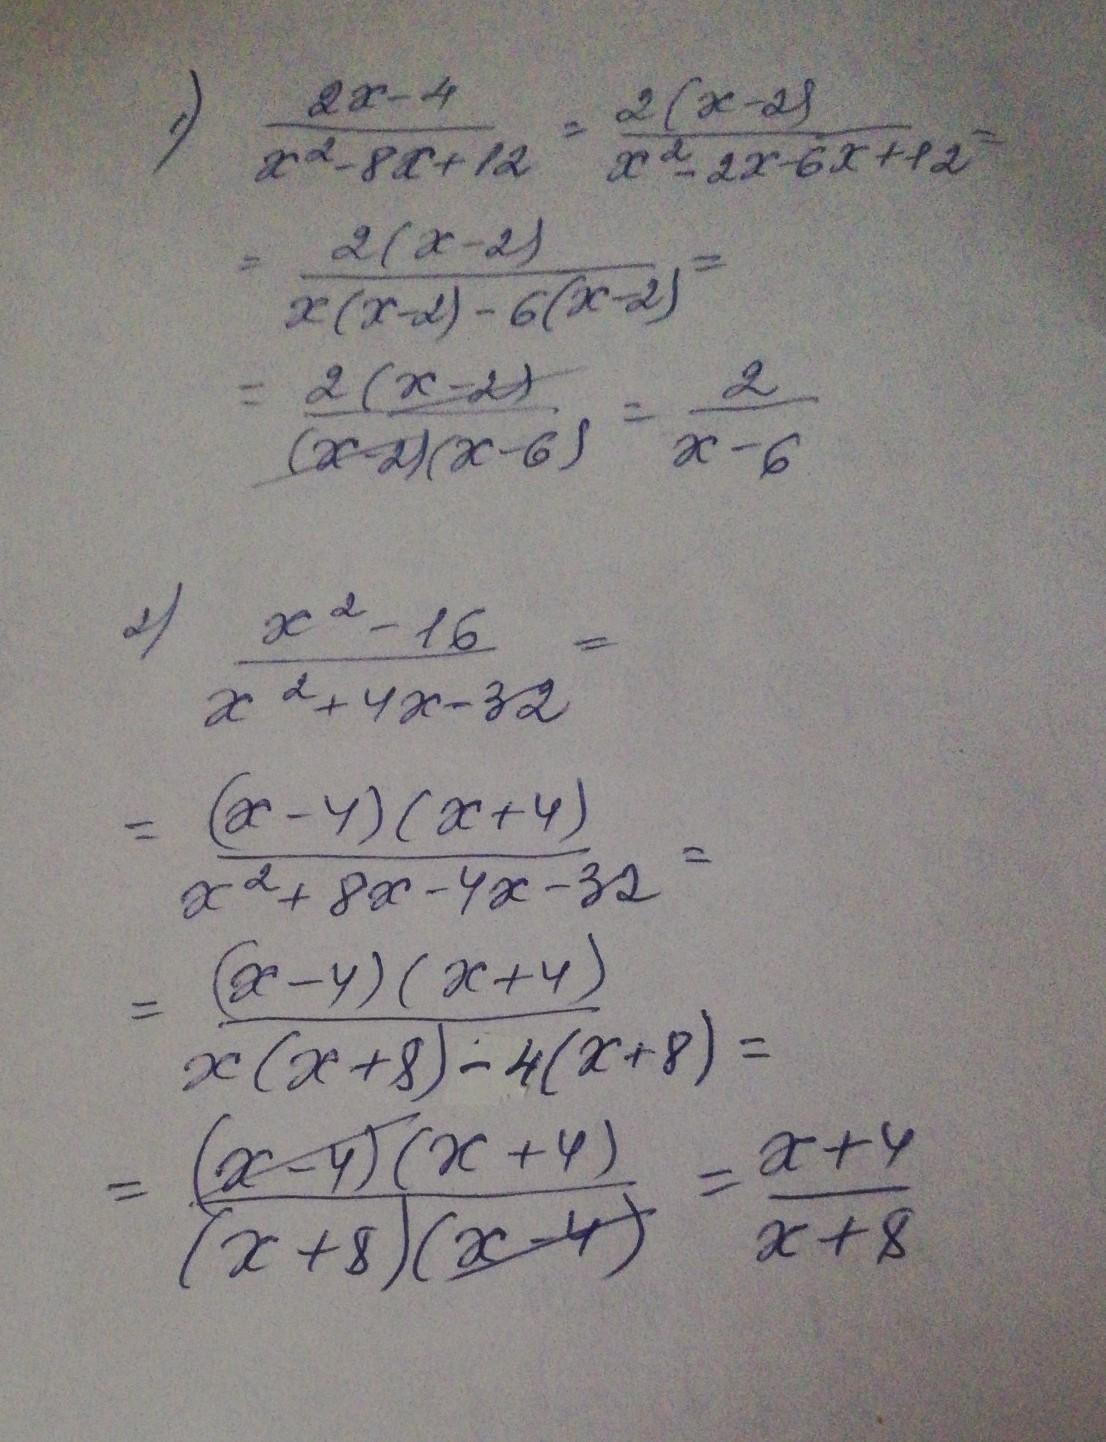 1) (2x-4)/(x²-8x+12) = 2(x-2)/(x²-2x-6x+12) =
= 2(x-2)/(x(x-2)-6(x-2)) =
= 2(x-2)/((x-2)(x-6)) = 2/(x-6)
2) (x²-16)/(x²+4x-32) =
= (x-4)(x+4)/(x²+8x-4x-32) =
= (x-4)(x+4)/(x(x+8)-4(x+8)) =
= (x-4)(x+4)/((x+8)(x-4)) = (x+4)/(x+8)